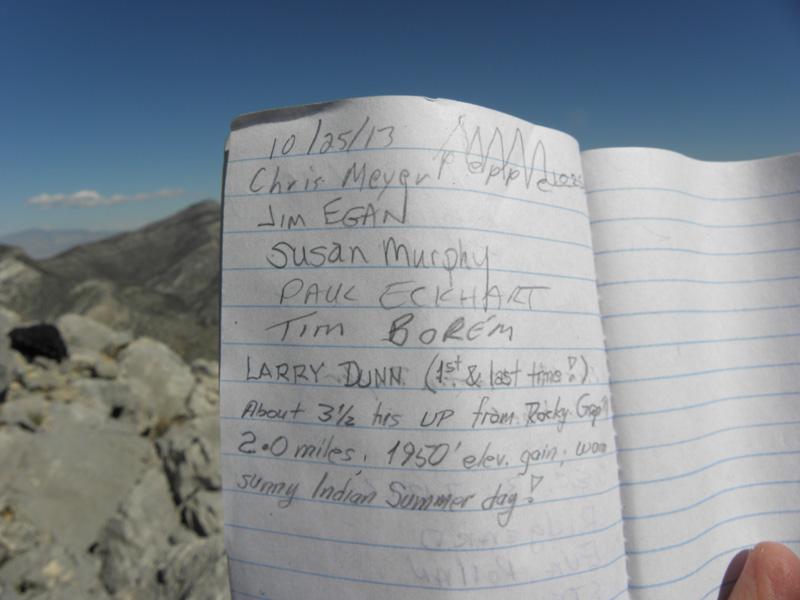 10/25/13
Chris Meyer
JIM EGAN
Susan Murphy
PAUL ECKHART
TIM BOREM
LARRY DUNN (1st & last time!)
About 3½ hrs UP from Rocky Gap
2.0 miles, 1950' elev. gain, warm
sunny Indian Summer day!